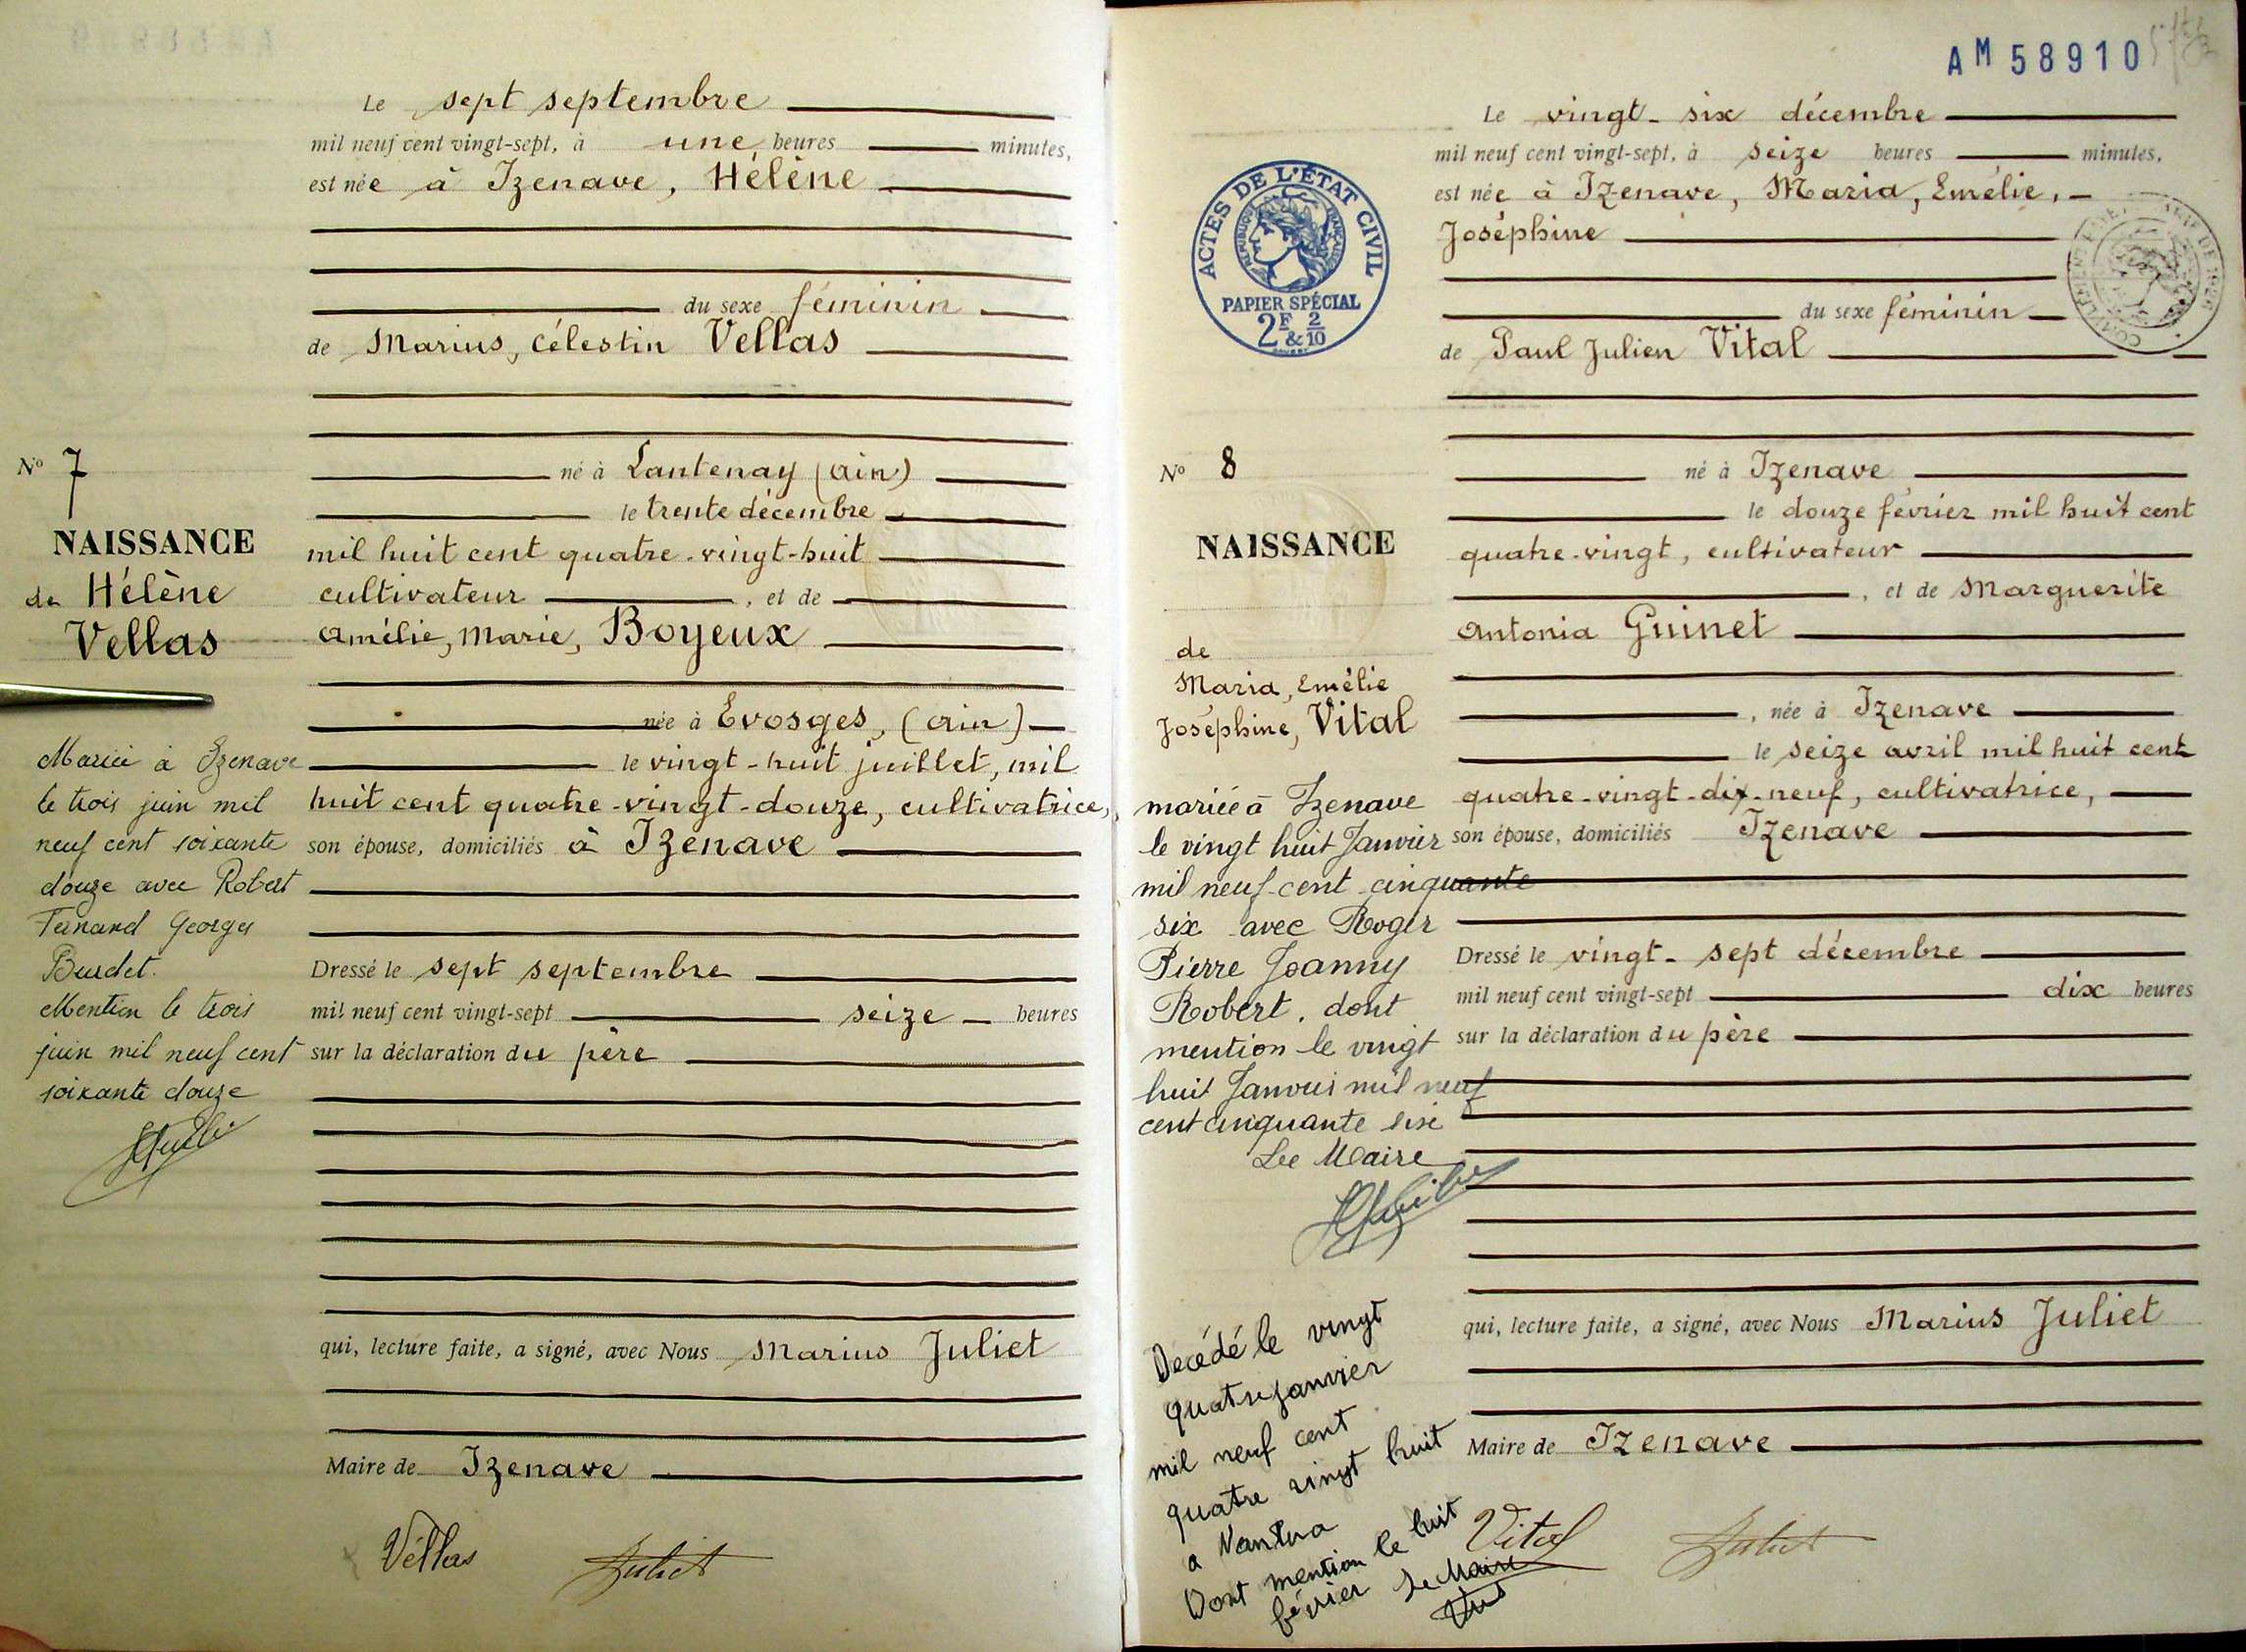 Le sept septembre
mil neuf cent vingt-sept, à une heures minutes,
est née à Izenave, Hélène
du sexe féminin
de Marius, Célestin Vellas
né à Lantenay (Ain)
le trente décembre
mil huit cent quatre-vingt-huit
cultivateur, et de
Amélie, Marie, Boyeux
née à Evosges, (Ain)
le vingt-huit juillet, mil
huit cent quatre-vingt-douze, cultivatrice,
son épouse, domiciliés à Izenave
Dressé le sept septembre
mil neuf cent vingt-sept seize heures
sur la déclaration du père
qui, lecture faite, a signé, avec Nous Marius Juliet
Maire de Izenave
Vellas Juliet
N° 7
NAISSANCE
de Hélène
Vellas
Mariée à Izenave
le trois juin mil
neuf cent soixante
douze avec Robert
Fernand Georges
Burdet.
Mention le trois
juin mil neuf cent
soixante douze
AM 58910
Le vingt-six décembre
mil neuf cent vingt-sept, à seize heures minutes,
est née à Izenave, Maria, Emélie,
Joséphine
du sexe féminin
de Paul Julien Vital
né à Izenave
le douze février mil huit cent
quatre-vingt, cultivateur
, et de Marguerite
Antonia Guinet
, née à Izenave
le seize avril mil huit cent
quatre-vingt-dix-neuf, cultivatrice,
son épouse, domiciliés Izenave
Dressé le vingt-sept décembre
mil neuf cent vingt-sept dix heures
sur la déclaration du père
qui, lecture faite, a signé, avec Nous Marius Juliet
Maire de Izenave
Vital Juliet
ACTES DE L'ÉTAT CIVIL
RÉPUBLIQUE FRANÇAISE
PAPIER SPÉCIAL
2F & 2/10
N° 8
NAISSANCE
de
Maria, Emélie
Joséphine, Vital
mariée à Izenave
le vingt huit Janvier
mil neuf cent cinquante
six avec Roger
Pierre Joanny
Robert. dont
mention le vingt
huit Janvier mil neuf
cent cinquante six
Le Maire
Decédé le vingt
quatre janvier
mil neuf cent
quatre vingt huit
a Nantua
Dont mention le huit
février Le Maire